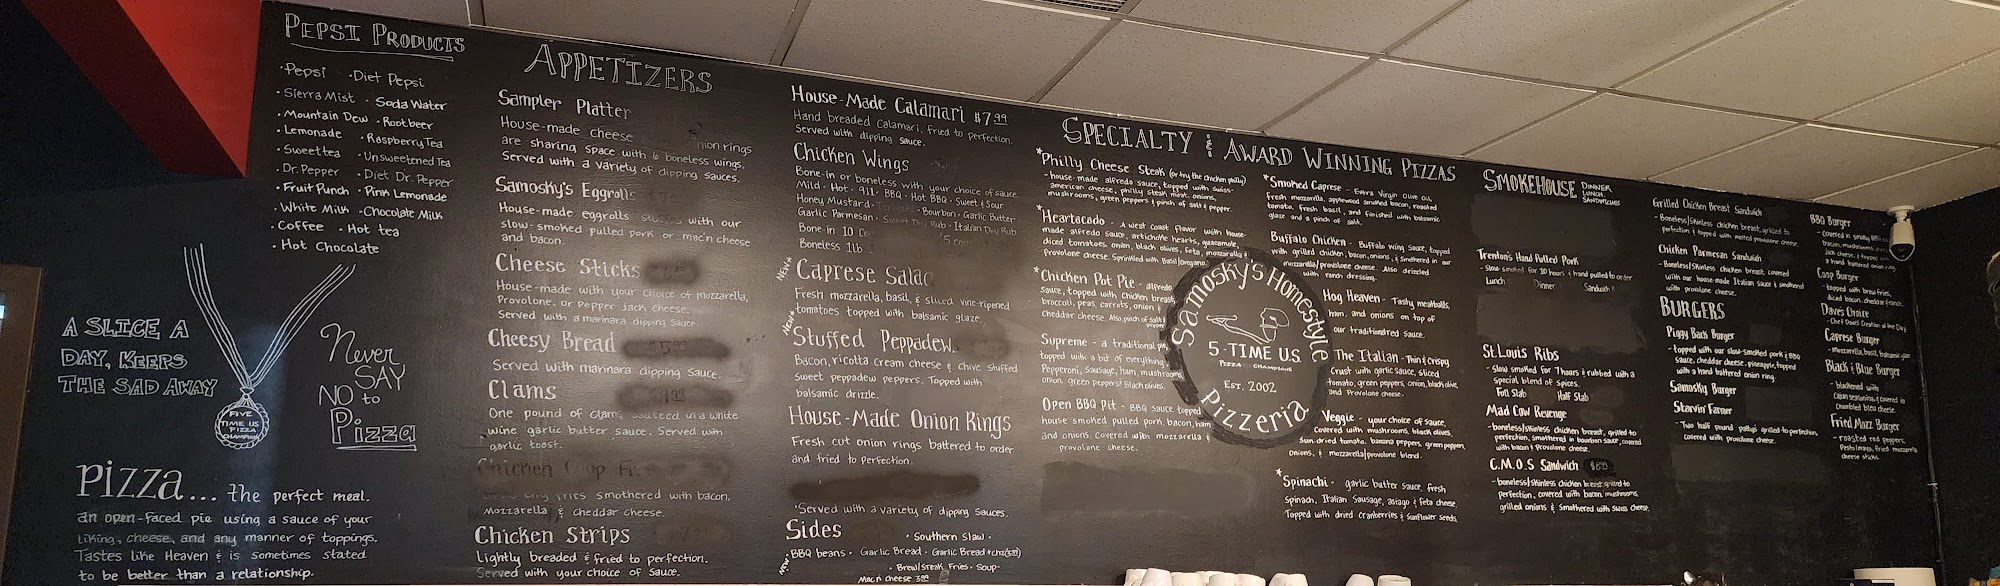 PEPSI PRODUCTS
·Pepsi ·Diet Pepsi
·Sierra Mist ·Soda Water
·Mountain Dew ·Rootbeer
·Lemonade ·Raspberry Tea
·Sweet tea ·Unsweetened Tea
·Dr. Pepper ·Diet Dr. Pepper
·Fruit Punch ·Pink Lemonade
·White Milk ·Chocolate Milk
·Coffee ·Hot tea
·Hot Chocolate
A SLICE A
DAY, KEEPS
THE SAD AWAY
FIVE
TIME US
PIZZA
CHAMPION
Never
SAY
NO to
Pizza
pizza... the perfect meal.
an open-faced pie using a sauce of your
liking, cheese, and any manner of toppings.
Tastes like Heaven & is sometimes stated
to be better than a relationship.
APPETIZERS
Sampler Platter
House-made cheese onion rings
are sharing space with 6 boneless wings.
Served with a variety of dipping sauces.
Samosky's Eggrolls
House-made eggrolls stuffed with our
slow-smoked pulled pork or mac'n cheese
and bacon.
Cheese Sticks
House-made with your choice of mozzarella,
Provolone, or pepper jack cheese.
Served with a marinara dipping sauce.
Cheesy Bread
Served with marinara dipping sauce.
Clams
One pound of clams sauteed in a white
wine garlic butter sauce. Served with
garlic toast.
Chicken
fries smothered with bacon,
Mozzarella & cheddar cheese.
Chicken Strips
Lightly breaded & fried to perfection.
Served with your choice of sauce.
House-Made Calamari $7.99
Hand breaded Calamari, fried to perfection.
Served with dipping sauce.
Chicken Wings
Bone-in or boneless with your choice of sauce
Mild · Hot · 911 · BBQ · Hot BBQ · Sweet & Sour
Honey Mustard · Bourbon · Garlic Butter
Garlic Parmesan · Rub · Italian Dry Rub
Bone-in 10
Boneless 1lb
NEW
Caprese Salad
Fresh mozzarella, basil, & sliced vine-ripened
tomatoes topped with balsamic glaze
NEW
Stuffed Peppadew
Bacon, ricotta cream cheese & chive stuffed
sweet peppadew peppers. Topped with
balsamic drizzle.
House-Made Onion Rings
Fresh cut onion rings battered to order
and fried to perfection.
*Served with a variety of dipping sauces.
Sides
· Southern Slaw ·
NEW
BBQ beans · Garlic Bread · Garlic Bread
· Brew/Steak Fries · Soup ·
Mac n cheese 3.99
SPECIALTY & AWARD WINNING PIZZAS
*Philly Cheese Steak (or try the chicken philly)
- house-made alfredo sauce, topped with swiss-
american cheese, philly steak meat, onions,
mushrooms, green peppers & pinch of salt & pepper.
*Heartacado - A west coast flavor with house-
made alfredo sauce, artichoke hearts, guacamole,
diced tomatoes, onion, black olives, feta, mozzarella &
provolone cheese. Sprinkled with Basil/oregano.
*Chicken Pot Pie - alfredo
sauce, topped with chicken breast,
broccoli, peas, carrots, onion &
cheddar cheese. Also, pinch of salt &
pepper
Supreme - a traditional pie
topped with a bit of everything
Pepperoni, Sausage, ham, mushrooms
onion, green peppers & black olives.
Open BBQ Pit - BBQ sauce topped
house smoked pulled pork, bacon, ham
and onions, covered with mozzarella &
provolone cheese.
Samosky's Homestyle
5-TIME U.S.
PIZZA CHAMPIONS
EST. 2002
Pizzeria
*Smoked Caprese - Extra Virgin Olive Oil,
fresh mozzarella, applewood smoked bacon, roasted
tomato, fresh basil, and finished with balsamic
glaze and a pinch of salt.
Buffalo Chicken - Buffalo wing sauce, topped
with grilled chicken, bacon, onions, & smothered in our
mozzarella/provolone cheese. Also drizzled
with ranch dressing.
Hog Heaven - Tasty meatballs,
ham, and onions on top of
our traditional red sauce.
The Italian - Thin & crispy
Crust with garlic sauce, sliced
tomato, green peppers, onion, black olive,
and Provolone cheese.
Veggie - your choice of sauce,
Covered with mushrooms, black olives,
Sun-dried tomato, banana peppers, green pepper,
onions, & mozzarella/provolone blend.
*Spinachi - garlic butter sauce, fresh
Spinach, Italian Sausage, asiago & feta cheese.
Topped with dried cranberries & Sunflower seeds.
SMOKEHOUSE DINNER
LUNCH
SANDWICHES
Trenton's Hand Pulled Pork
- Slow smoked for 10 hours & hand pulled to order
Lunch Dinner Sandwich
St. Louis Ribs
- Slow smoked for 7 hours & rubbed with a
special blend of spices.
Full Slab Half Slab
Mad Cow Revenge
- boneless/skinless chicken breast, grilled to
perfection, smothered in bourbon sauce, covered
with bacon & provolone cheese.
C.M.O.S Sandwich
- boneless/skinless chicken breast grilled to
perfection, covered with bacon, mushrooms,
grilled onions & smothered with Swiss cheese.
Grilled Chicken Breast Sandwich
- Boneless/Skinless chicken breast, grilled to
perfection & topped with melted provolone cheese.
Chicken Parmesan Sandwich
- Boneless/Skinless chicken breast, covered
with our house made Italian sauce & smothered
with provolone cheese.
BURGERS
Piggy Back Burger
- topped with our slow-smoked pork & BBQ
sauce, cheddar cheese, pineapple, topped
with a hand battered onion ring.
Samosky Burger
Starvin' Farmer
- Two half pound pattys grilled to perfection,
covered with provolone cheese.
BBQ Burger
- covered in smoky BBQ
bacon, mushrooms,
Jack cheese, & topped
a hand battered onion ring
Coop Burger
- topped with brew fries,
diced bacon, cheddar
Dave's Choice
- Chef Dave's Creation of the Day
Caprese Burger
- Mozzarella, basil, balsamic
Black & Blue Burger
- blackened with
Cajun seasoning, & covered in
Crumbled bleu cheese.
Fried Mozz Burger
- roasted red peppers,
Pesto/mayo, fried mozzarella
cheese sticks.